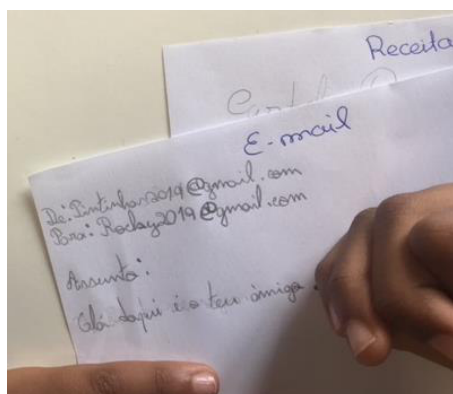 Receita
E-mail
De: Tintinhar2019@gmail.com
Para: Roclay2019@gmail.com
Assunto:
Olá daqui é o teu amigo